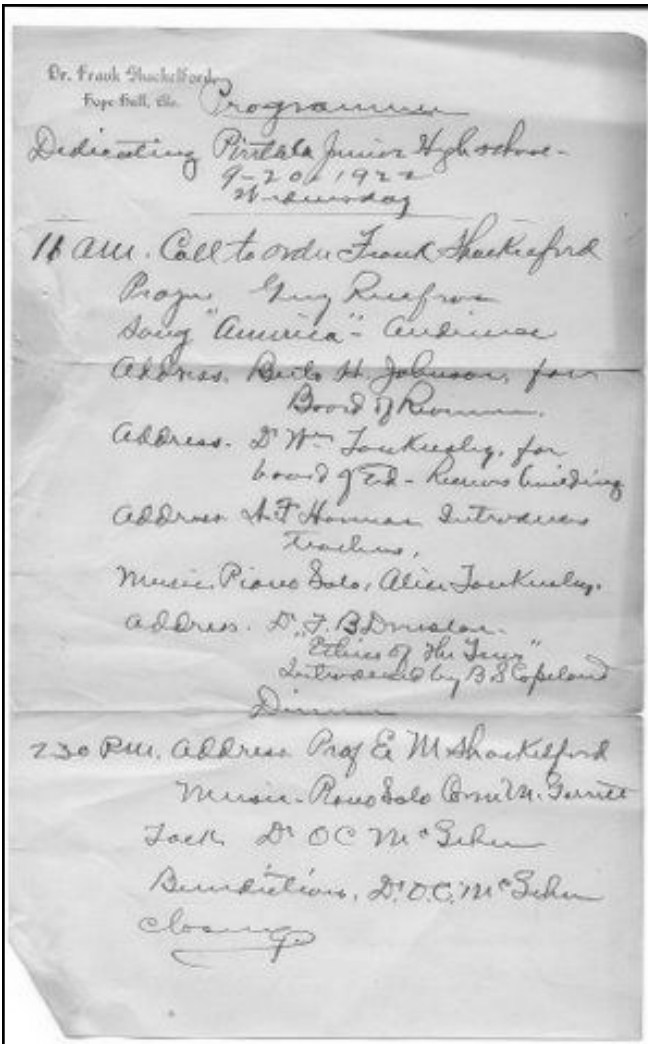 Dr. Frank Shackelford
Hope Hull, Ala.
Programme
Dedicating Pintlala Junior High school-
9-20-1922
Wednesday
11 am. Call to order Frank Shackelford
Prayer Guy Renfroe
Song "America" - Audience
Address. H. Johnson, for
Board of Revenue.
Address. Dr Wm Tankersley, for
board of Ed - Receives building
Address A F Harman Introduces
teachers,
Music, Piano Solo, Alice Tankersley.
Address. Dr. F. B
"Ethics of the"
Introduced by B S Copeland
Dinner
2 30 P.M. Address Prof E M Shackelford
Music - Piano Solo M. Garrett
Talk Dr O C McGehee
Benediction, Dr. O. C. McGehee
closing.